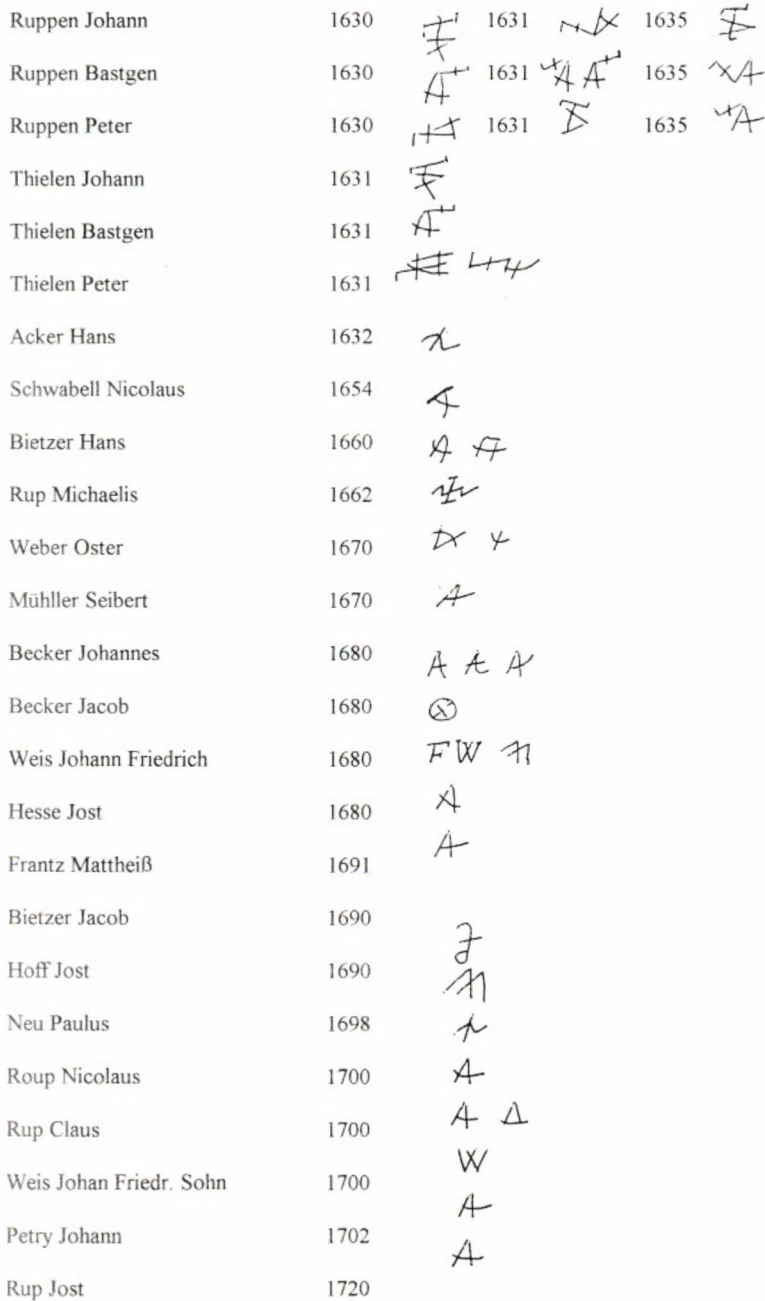 Ruppen Johann 1630 1631 1635
Ruppen Bastgen 1630 1631 1635
Ruppen Peter 1630 1631 1635
Thielen Johann 1631
Thielen Bastgen 1631
Thielen Peter 1631
Acker Hans 1632
Schwabell Nicolaus 1654
Bietzer Hans 1660
Rup Michaelis 1662
Weber Oster 1670
Mühller Seibert 1670
Becker Johannes 1680
Becker Jacob 1680
Weis Johann Friedrich 1680 FW
Hesse Jost 1680
Frantz Mattheiß 1691
Bietzer Jacob 1690
Hoff Jost 1690
Neu Paulus 1698
Roup Nicolaus 1700
Rup Claus 1700
Weis Johan Friedr. Sohn 1700 W
Petry Johann 1702
Rup Jost 1720